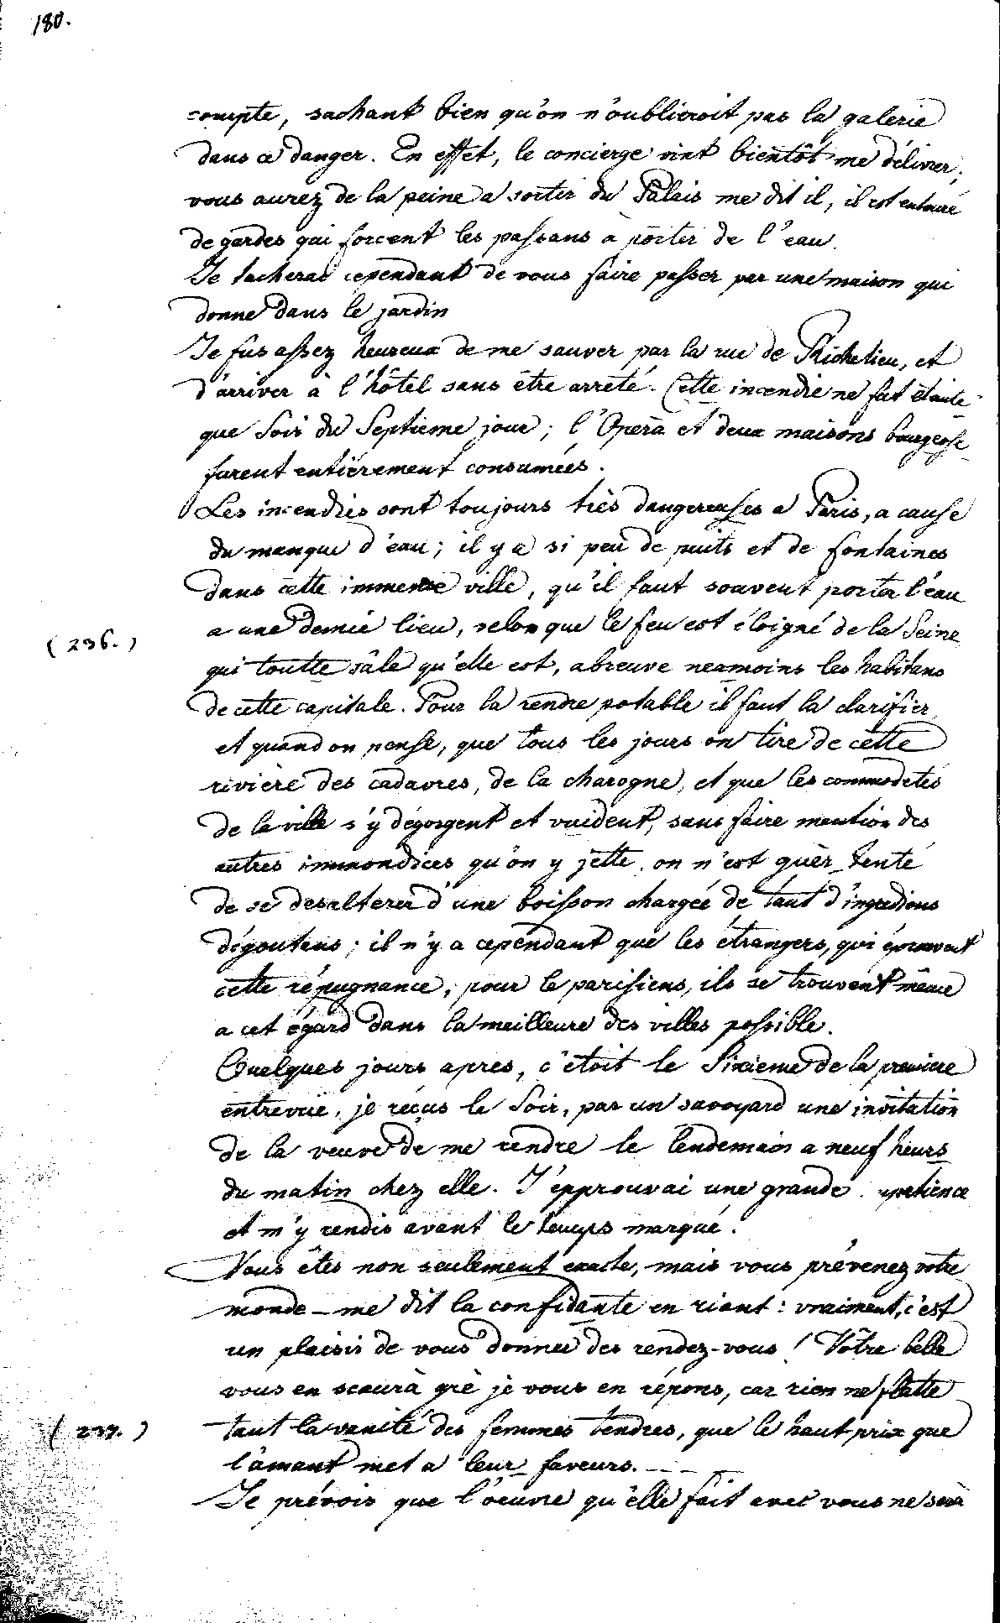 180.
compte, sachant bien qu'on n'oublieroit pas la galerie
dans ce danger. En effet, le concierge vint bientôt me délivrer;
vous aurez de la peine a sortir du Palais me dit il, il est entouré
de gardes qui forcent les passans a porter de l'eau.
Je tacherai cependant de vous faire passer par une maison qui
donne dans le jardin
Je fus assez heureux de me sauver par la rue de Richelieu, et
d'arriver à l'hôtel sans être arreté. Cette incendie ne fut éteinte
que Soir du Septieme jour; l'Opera et deux maisons bourgeose
furent entiérement consumées.
Les incendies sont toujours très dangereuses a Paris, a cause
du manque d'eau; il y a si peu de puits et de fontaines
dans cette immense ville, qu'il faut souvent porter l'eau
a une demie lieu, selon que le feu est éloigné de la Seine
(236.)
qui toutte sâle qu'elle est, abreuve neamoins les habitans
de cette capitale. Pour la rendre potable il faut la clarifier
et quand on pense, que tous les jours on tire de cette
riviere des cadavres, de la charogne, et que les commodetés
de la ville s'y dégorgent et vuident, sans faire mention des
autres immondices qu'on y jette, on n'est guèr tenté
de se desalterer d'une boisson chargée de tant d'ingrediens
dégoutans; il n'y a cependant que les étrangers, qui éprouvent
cette répugnance; pour le parisiens, ils se trouvent même
a cet égard dans la meilleure des villes possible.
Quelques jours apres, c'étoit le Sixieme de la premiere
entrevue, je reçus le Soir, par un savoyard une invitation
de la veuve de me rendre le lendemain a neuf heurs
du matin chez elle. J'epprouvai une grande
et m'y rendis avant le temps marqué.
Vous êtes non seulement exacte, mais vous prévenez votre
monde – me dit la confidante en riant: vraiment, c'est
un plaisir de vous donner des rendez-vous! Vôtre belle
vous en scaurà grè je vous en répons, car rien ne flatte
(237.)
tant la vanité des femmes tendres, que le haut prix que
l'amant met a leur faveurs. – – – –
Je prévois que l'oeuvre qu'elle fait avec vous ne sera